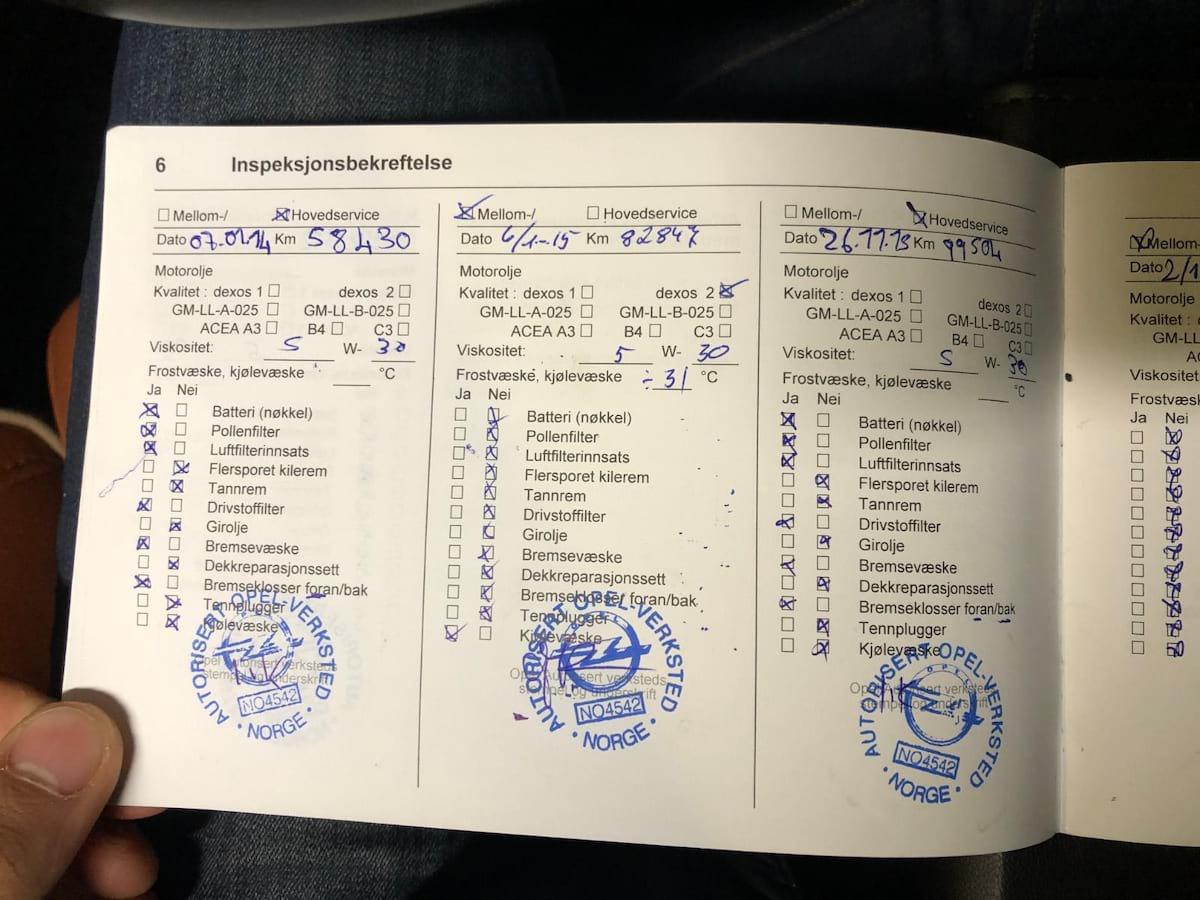 6 Inspeksjonsbekreftelse
☐ Mellom-/ ☒ Hovedservice
Dato 07.01.14 Km 58430
Motorolje
Kvalitet : dexos 1 ☐ dexos 2 ☐
GM-LL-A-025 ☐ GM-LL-B-025 ☐
ACEA A3 ☐ B4 ☐ C3 ☐
Viskositet: 5 W- 30
Frostvæske, kjølevæske °C
Ja Nei
☒ ☐ Batteri (nøkkel)
☒ ☐ Pollenfilter
☒ ☐ Luftfilterinnsats
☐ ☒ Flersporet kilerem
☐ ☒ Tannrem
☒ ☐ Drivstoffilter
☐ ☒ Girolje
☒ ☐ Bremsevæske
☐ ☒ Dekkreparasjonssett
☒ ☐ Bremseklosser foran/bak
☐ ☒ Tennplugger
☐ ☒ Kjølevæske
Opel Autorisert verksteds
stempel og underskrift
AUTORISERT OPEL-VERKSTED
NO4542
• NORGE •
☒ Mellom-/ ☐ Hovedservice
Dato 6/1-15 Km 82847
Motorolje
Kvalitet : dexos 1 ☐ dexos 2 ☒
GM-LL-A-025 ☐ GM-LL-B-025 ☐
ACEA A3 ☐ B4 ☐ C3 ☐
Viskositet: 5 W- 30
Frostvæske, kjølevæske ÷31 °C
Ja Nei
☐ ☒ Batteri (nøkkel)
☐ ☒ Pollenfilter
☐ ☒ Luftfilterinnsats
☐ ☒ Flersporet kilerem
☐ ☒ Tannrem
☐ ☒ Drivstoffilter
☐ ☒ Girolje
☐ ☒ Bremsevæske
☐ ☒ Dekkreparasjonssett
☐ ☒ Bremseklosser foran/bak
☐ ☒ Tennplugger
☒ ☐ Kjølevæske
Opel Autorisert verksteds
stempel og underskrift
AUTORISERT OPEL-VERKSTED
NO4542
• NORGE •
☐ Mellom-/ ☒ Hovedservice
Dato 26.11.15 Km 99504
Motorolje
Kvalitet : dexos 1 ☐ dexos 2 ☐
GM-LL-A-025 ☐ GM-LL-B-025 ☐
ACEA A3 ☐ B4 ☐ C3 ☐
Viskositet: 5 W- 30
Frostvæske, kjølevæske °C
Ja Nei
☒ ☐ Batteri (nøkkel)
☒ ☐ Pollenfilter
☒ ☐ Luftfilterinnsats
☐ ☒ Flersporet kilerem
☐ ☒ Tannrem
☒ ☐ Drivstoffilter
☐ ☒ Girolje
☒ ☐ Bremsevæske
☐ ☒ Dekkreparasjonssett
☒ ☐ Bremseklosser foran/bak
☐ ☒ Tennplugger
☐ ☒ Kjølevæske
Opel Autorisert verksteds
stempel og underskrift
AUTORISERT OPEL-VERKSTED
OPEL
NO4542
• NORGE •
☒ Mellom-
Dato 2/1
Motorolje
Kvalitet :
GM-LL
Viskositet:
Ja Nei